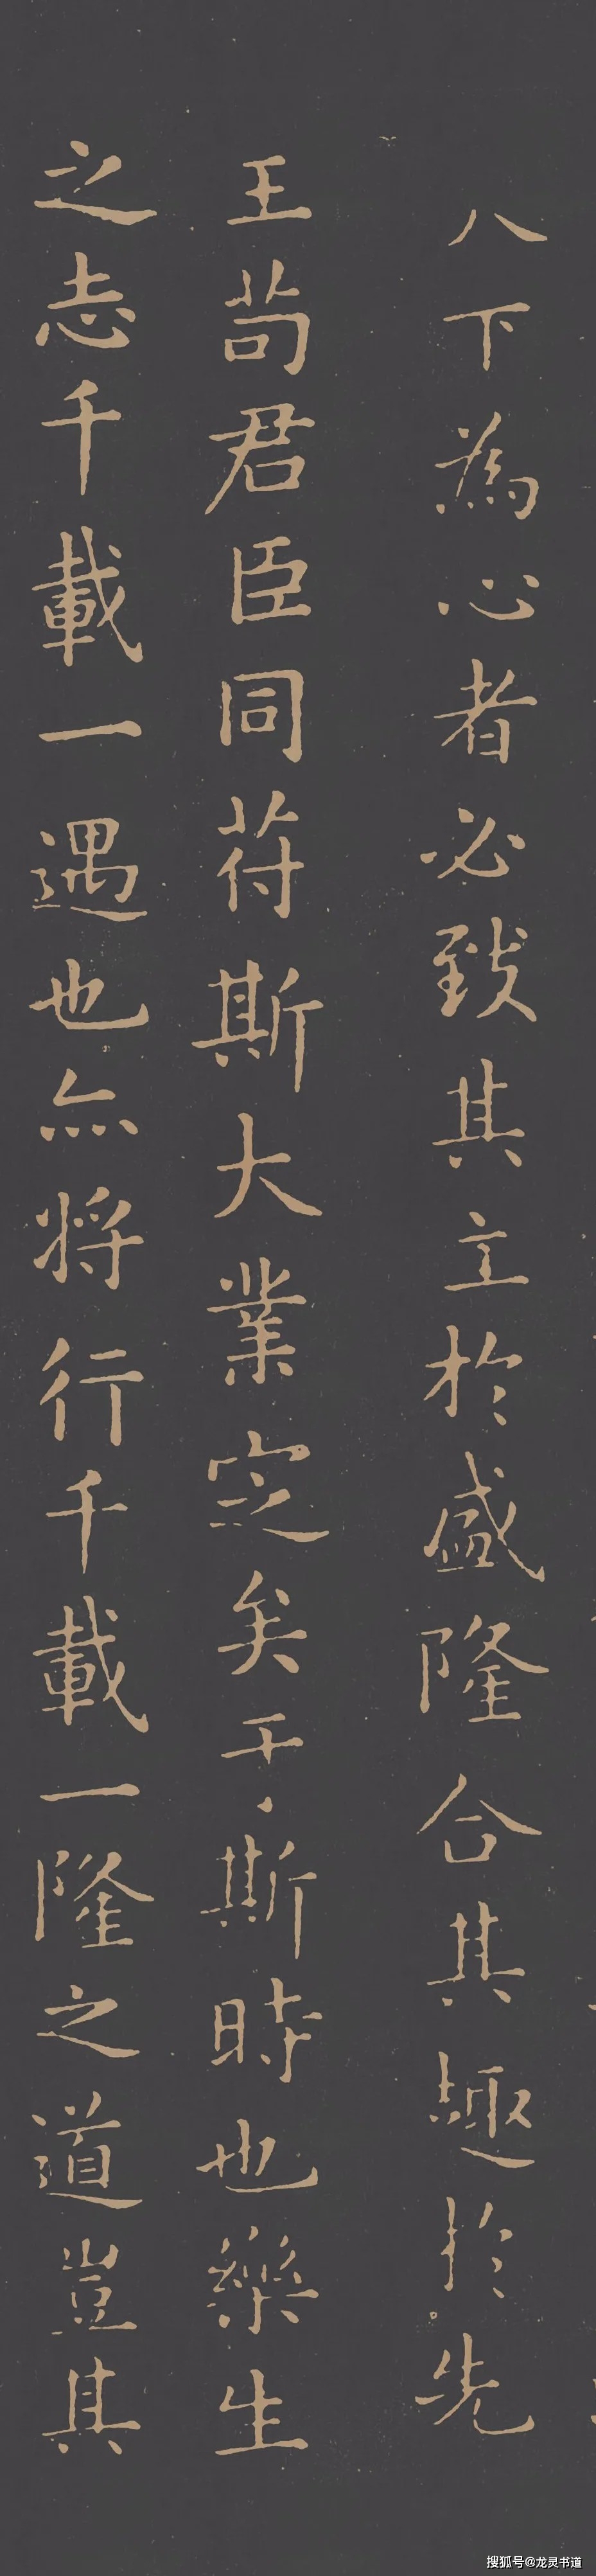 八下為心者必致其主於盛隆合其趣於先
王苟君臣同苻斯大業定矣于斯時也樂生
之志千載一遇也亦将行千載一隆之道豈其
搜狐号@龙灵书道